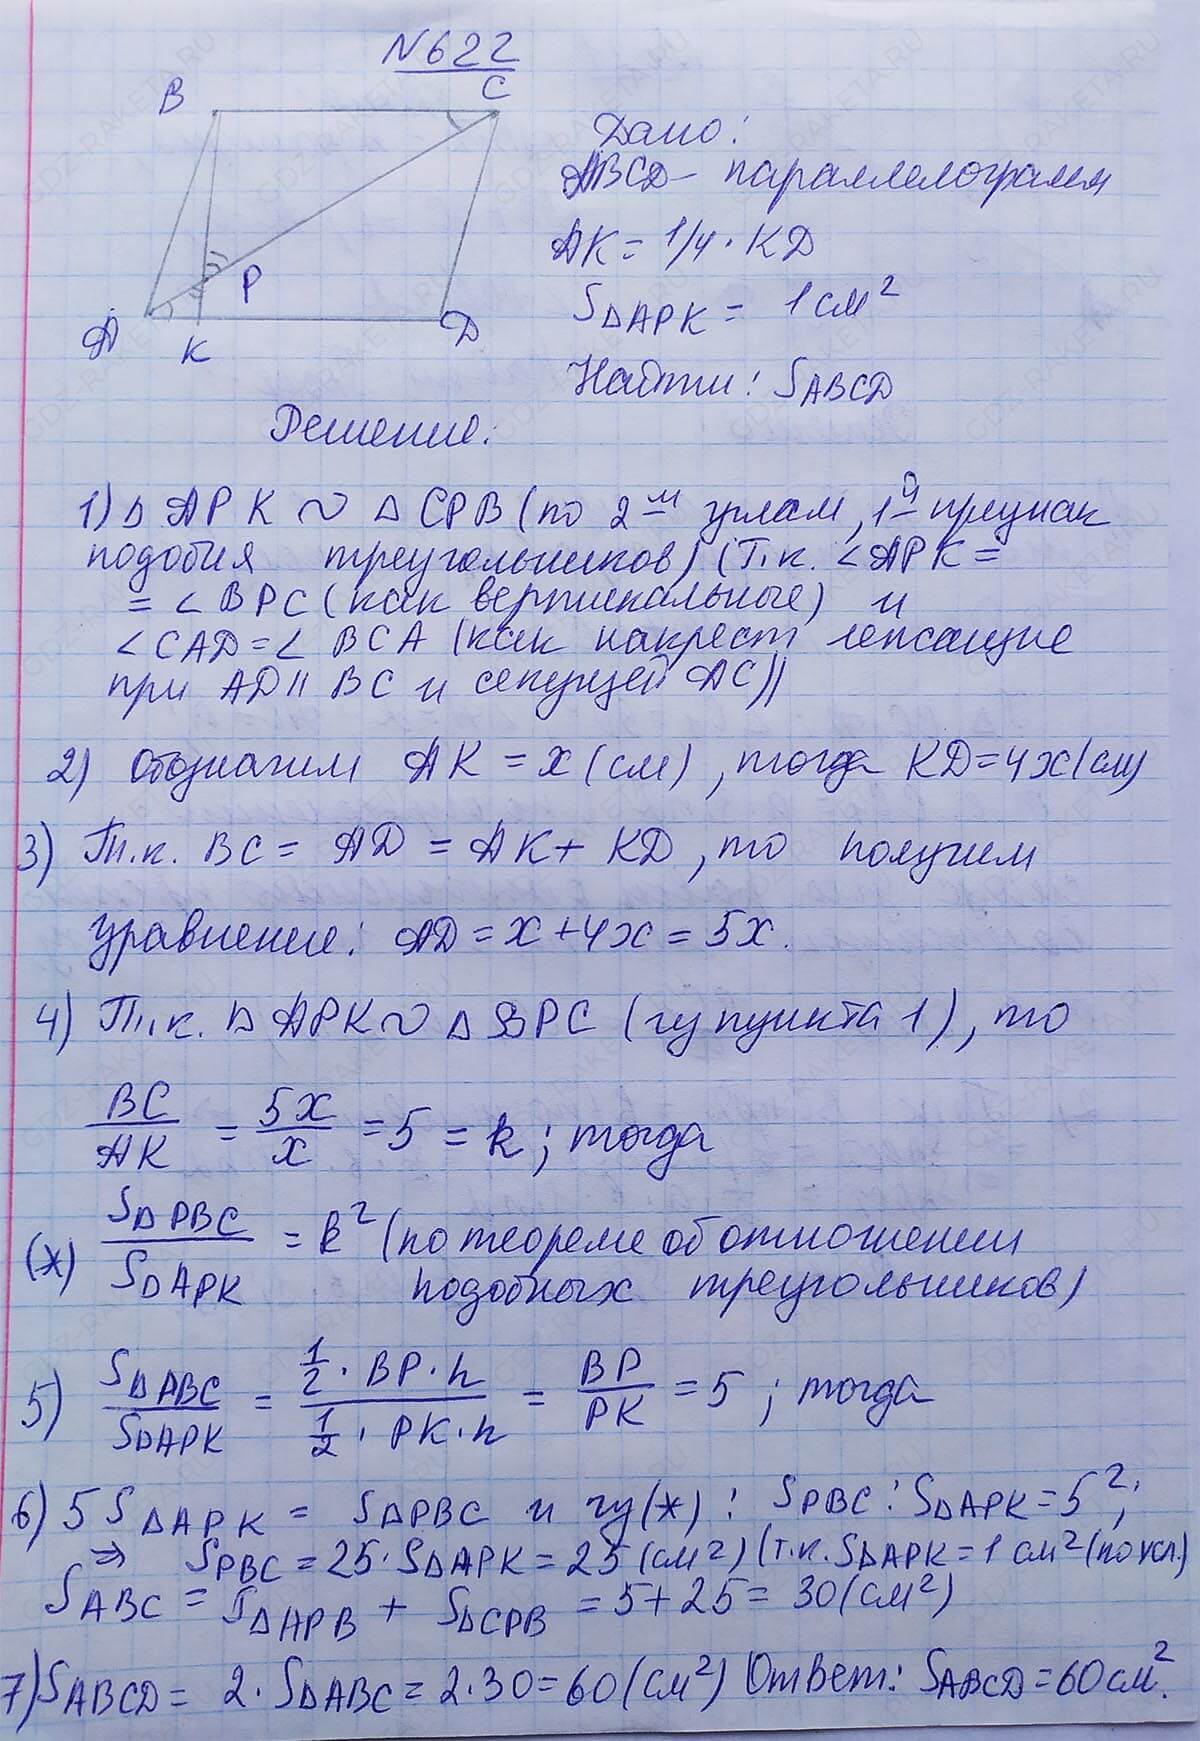 N622
B
C
P
A
K
D
Дано:
ABCD - параллелограмм
AK = 1/4 · KD
S△APK = 1 см²
Найти: SABCD
Решение:
1) △ APK ∼ △ CPB (по 2-м углам, 1-й признак
подобия треугольников) (Т.к. ∠APK =
= ∠BPC (как вертикальные) и
∠CAD = ∠ BCA (как накрест лежащие
при AD || BC и секущей AC))
2) Обозначим AK = x (см), тогда KD = 4x (см)
3) Т.к. BC = AD = AK + KD, то получим
уравнение: AD = x + 4x = 5x.
4) Т.к. △ APK ∼ △ BPC (из пункта 1), то
BC/AK = 5x/x = 5 = k; тогда
(*) S△PBC/S△APK = k² (по теореме об отношении
подобных треугольников)
5) S△ABC/S△APK = 1/2 · BP · h / 1/2 · PK · h = BP/PK = 5; тогда
6) 5 S△APK = S△PBC и из (*): SPBC : S△APK = 5²;
⇒ SPBC = 25 · S△APK = 25 (см²) (т.к. S△APK = 1 см² (по усл.)
SABC = S△APB + S△CPB = 5 + 25 = 30 (см²)
7) SABCD = 2 · S△ABC = 2 · 30 = 60 (см²) Ответ: SABCD = 60 см².